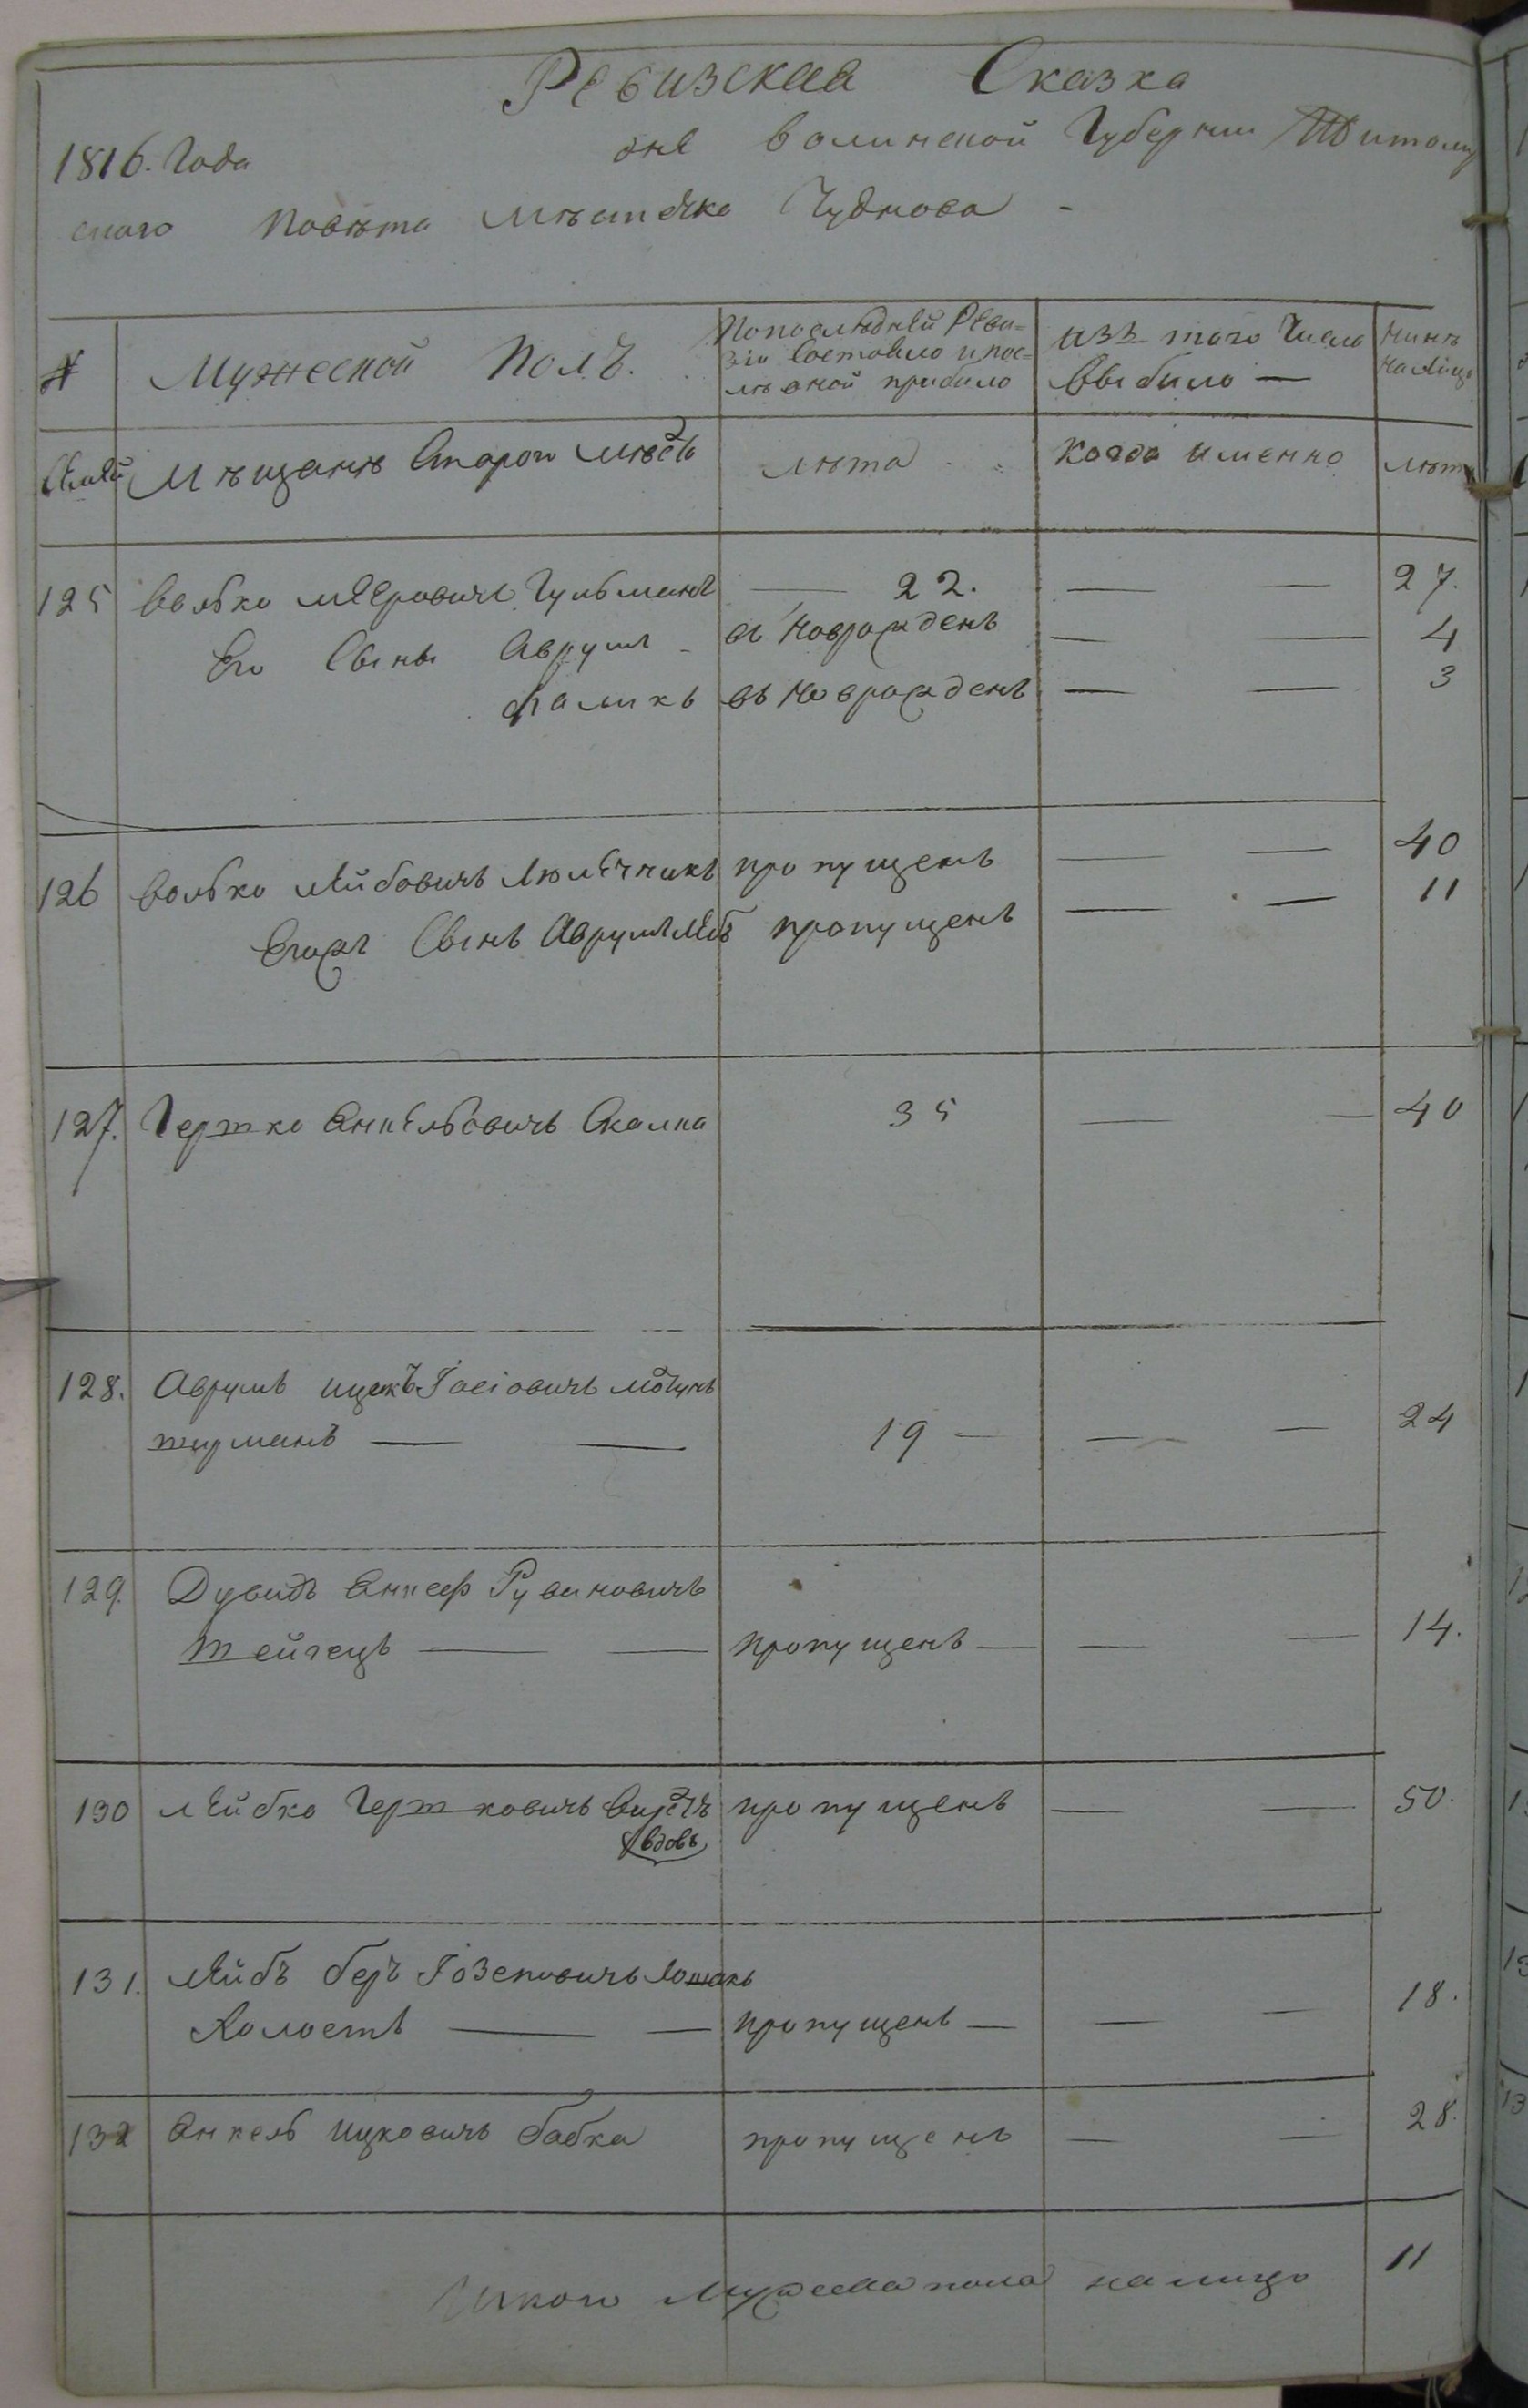 Ревизская Сказка
1816. Года дня Волинской Губернии Житомир
ского Повѣта мѣстечка Чуднова -
№ Мужеской Полъ. По последней Реви= зіи Состояло и пос= лѣ оной прибыло изъ того Числа Выбыло — Нинѣ налицо
Семей Мѣщанѣ лѣта Когда именно лѣта
125 Волько меЕровичъ Гульманъ — 22. — — 27.
Его Сыны Аврумъ - въ Новорожденъ — — 4
Фаликъ въ Новорожденъ — — 3
126 Волько лейбовичъ пропущенъ — — 40
Егожъ Сынъ Аврумъ Лейбъ пропущенъ — — 11
127. Гершко Янкельовичъ Скалка 35 — — 40
128. Аврумъ ицекъ Іосіовичъ
турманъ — — 19 — — — 24
129. Дувидъ Янкеф Рувиновичъ
Тейгецъ — — пропущенъ — — — 14.
130 лейбко Гершковичъ пропущенъ — — 50.
вдовъ
131. лейбъ беръ Іозеповичъ Лошакъ
Холостъ — — пропущенъ — — — 18.
132 Янкель ицковичъ бабка пропущенъ — — 28.
Итого Мужеска пола налицо 11